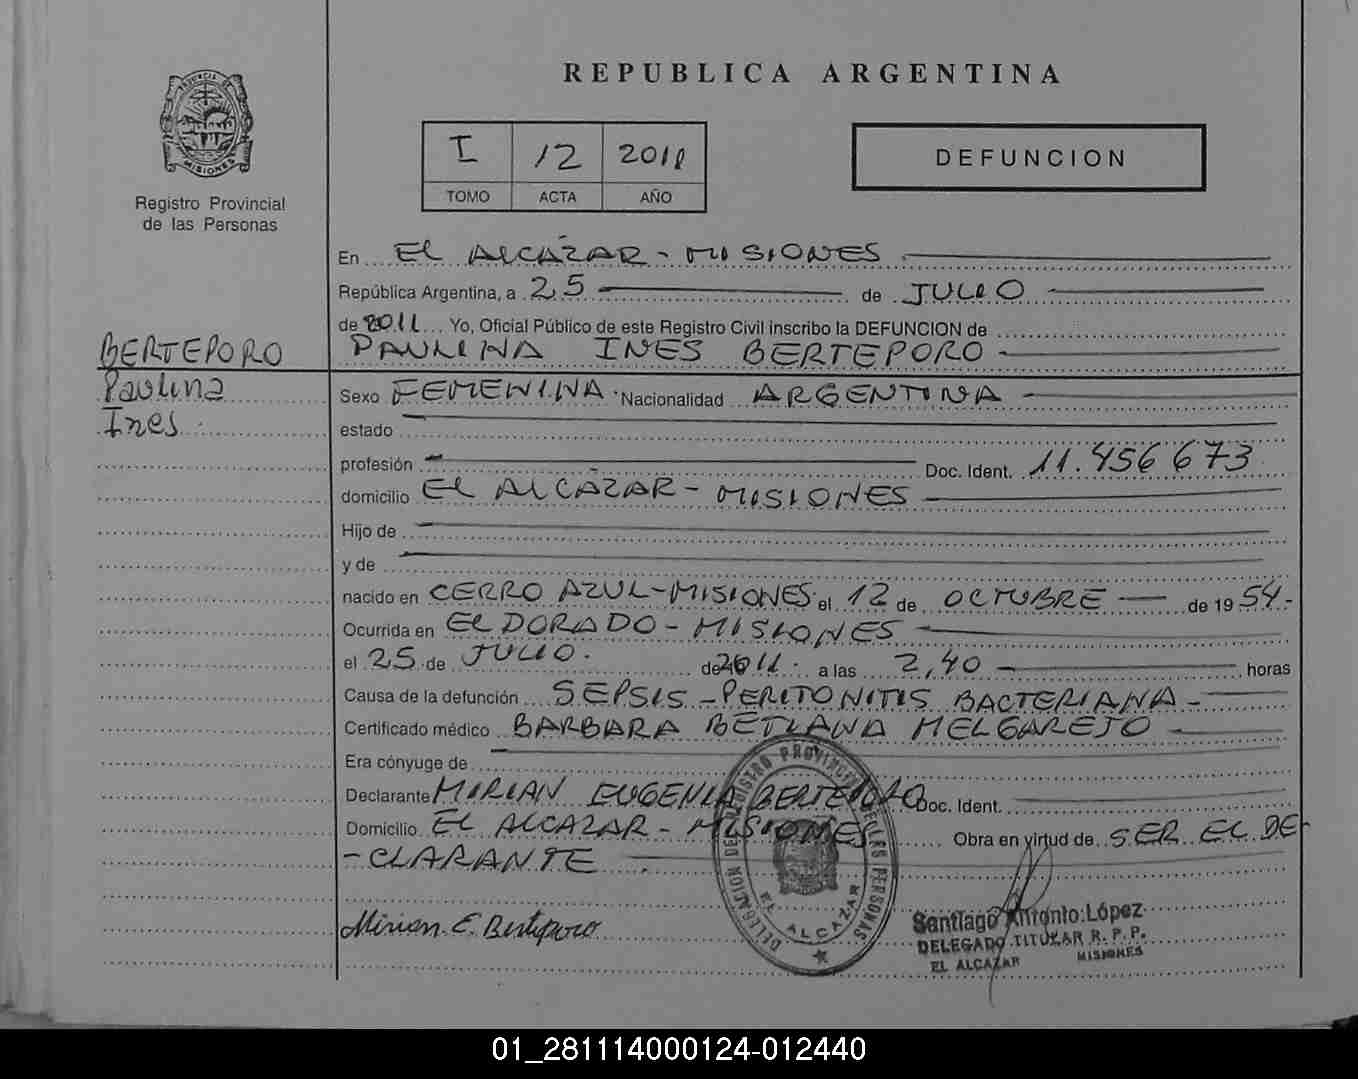 REPUBLICA ARGENTINA
PROVINCIA DE
MISIONES
Registro Provincial
de las Personas
I 12 2011
TOMO ACTA AÑO
DEFUNCION
En EL ALCÁZAR - MISIONES
República Argentina, a 25 de JULIO
de 2011 Yo, Oficial Público de este Registro Civil inscribo la DEFUNCION de
BERTEPORO
PAULINA INES BERTEPORO
Paulina
Ines
Sexo FEMENINA. Nacionalidad ARGENTINA
estado
profesión Doc. Ident. 11.456673
domicilio EL ALCÁZAR - MISIONES
Hijo de
y de
nacido en CERRO AZUL-MISIONES el 12 de OCTUBRE de 1954.
Ocurrida en ELDORADO - MISIONES
el 25 de JULIO. de 2011. a las 2,40 horas
Causa de la defunción SEPSIS - PERITONITIS BACTERIANA-
Certificado médico BARBARA BETIANA MELGAREJO
Era cónyuge de
Declarante MIRIAN EUGENIA BERTEPORO Doc. Ident.
Domicilio EL ALCAZAR - MISIONES Obra en virtud de SER EL DE-
-CLARANTE
Mirian. E. Berteporo
DELEGACION DEL REGISTRO PROVINCIAL DE LAS PERSONAS
EL ALCAZAR
Santiago Antonio López
DELEGADO TITULAR R. P. P.
EL ALCAZAR MISIONES
01_281114000124-012440